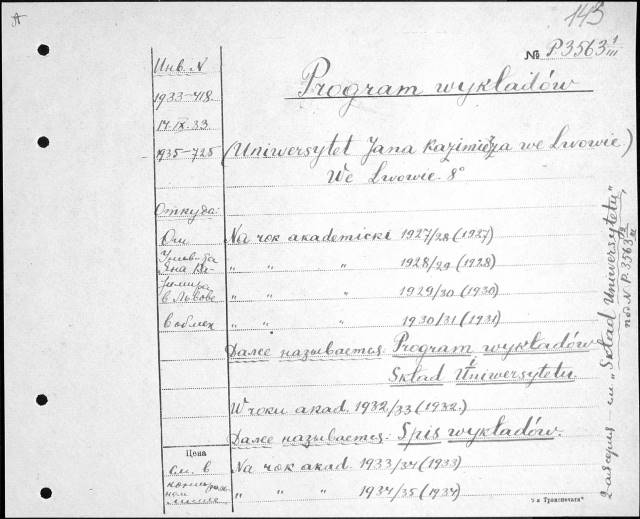 A
143
№ P.3563 1/III
Program wykładów
(Uniwersytet Jana Kazimieża we Lwowie.)
We Lwowie. 8°
Инв. N
1933-418
14.IX.33
1935-725
Откуда:
От
Унив-та
Яна Ка-
зимира
в Львове
в обмен
Na rok akademicki 1927/28 (1927)
„ „ „ 1928/29 (1928)
„ „ „ 1929/30 (1930)
„ „ „ 1930/31 (1931)
Далее называется: Program wykładów
i
Skład Uniwersytetu.
W roku akad. 1932/33 (1932.)
Далее называется: Spis wykładów.
Na rok akad. 1933/34 (1933)
„ „ „ 1934/35 (1934)
Цена
см. в
2-ая серия см. „Skład Uniwersytetu"
под N. P.3563
5-я Транспечати"